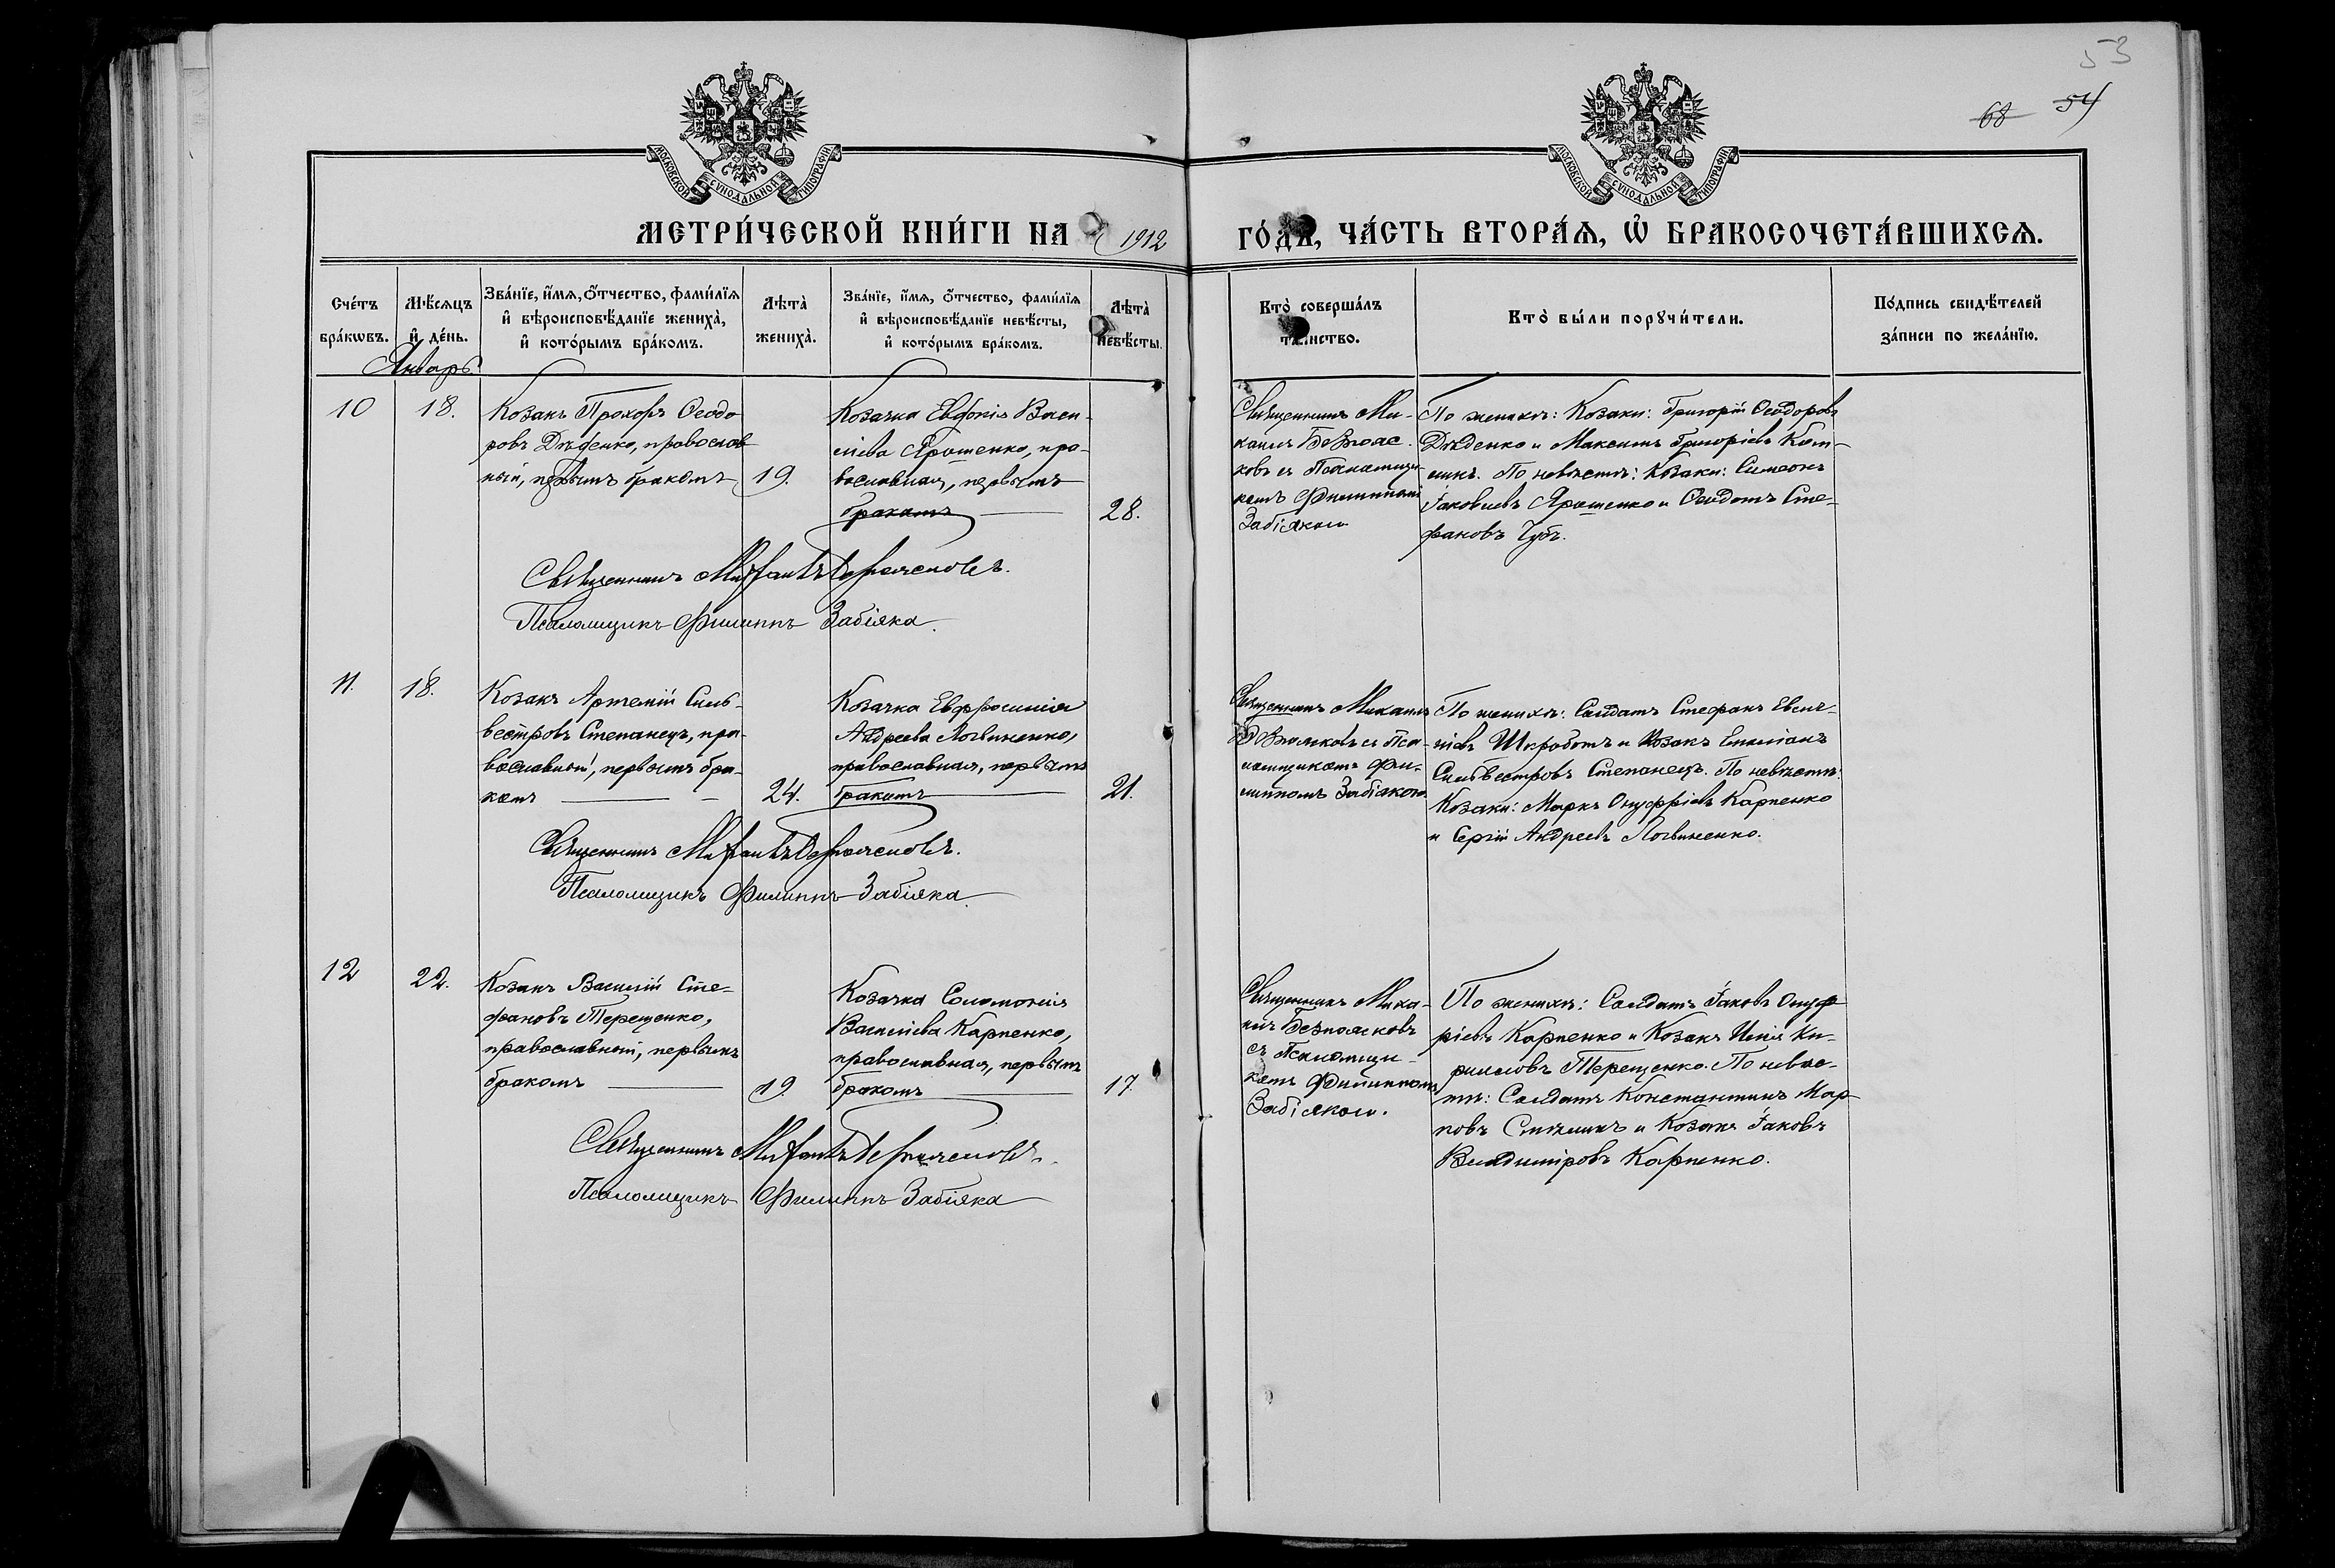 53
68 54
МОСКОВСКОЙ СѴНОДАЛЬНОЙ ТИПОГРАФІИ
МОСКОВСКОЙ СѴНОДАЛЬНОЙ ТИПОГРАФІИ
МЕТРИ́ЧЕСКОЙ КНИ́ГИ НА 1912
ГО́ДЪ, ЧА́СТЬ ВТОРА́Ѧ, Ѡ҆ БРАКОСОЧЕТА́ВШИХСѦ.
Сче́тъ бра́кωвъ.
Мѣ́сяцъ и҆ де́нь.
Зва́нїе, и҆́мя, ѻ҆́тчество, фами́лїя
и҆ вѣроисповѣ́данїе жениха̀,
и҆ кото́рымъ бра́комъ.
Лѣта̀
жениха̀.
Зва́нїе, и҆́мя, ѻ҆́тчество, фами́лїя
и҆ вѣроисповѣ́данїе невѣ́сты,
и҆ кото́рымъ бра́комъ.
Лѣта̀
невѣ́сты.
Кто̀ соверша́лъ
та́инство.
Кто̀ бы́ли порꙋчи́тели.
По́дпись свидѣ́телей
за́писи по жела́нїю.
Январь.
10
18.
Козакъ Прохоръ Ѳеодо
ровъ Дѣденко, православ
ный, первымъ бракомъ
19.
Козачка Евдокія Васи-
ліева Ярошенко, пра-
вославная, первымъ
бракомъ
28.
Священникъ Ми-
хаилъ Безпояс-
ковъ съ Псаломщи-
комъ Филиппомъ
Забіякою
По женихѣ: Козаки: Григорій Ѳеодоровъ
Дѣденко и Максимъ Григоріевъ Кот-
По невѣстѣ: Козаки: Симеонъ
Іаковлевъ Ярошенко и Ѳеодотъ Сте-
фановъ Чубъ.
Священникъ Михаилъ Безпоясковъ.
Псаломщикъ Филиппъ Забіяка.
11.
18.
Козакъ Артемій Силь-
вестровъ Степанецъ, пра-
вославный, первымъ бра-
комъ
24.
Козачка Евфросинія
Андреева Логвиненко,
православная, первымъ
бракомъ
21.
Священникъ Михаилъ
Безпоясковъ съ Пса-
ломщикомъ Фи-
липпомъ Забіякою
По женихѣ: Солдатъ Стефанъ Евге-
ніевъ Шкроботъ и Козакъ Емиліанъ
Сильвестровъ Степанецъ. По невѣстѣ:
Козаки: Маркъ Онуфріевъ Карпенко
и Сергій Андреевъ Логвиненко.
Священникъ Михаилъ Безпоясковъ.
Псаломщикъ Филиппъ Забіяка.
12
22.
Козакъ Василій Сте-
фановъ Терещенко,
православный, первымъ
бракомъ
19.
Козачка Соломонія
Василіева Карпенко,
православная, первымъ
бракомъ
17.
Священникъ Миха-
илъ Безпоясковъ
съ Псаломщи-
комъ Филиппомъ
Забіякою.
По женихѣ: Солдатъ Іаковъ Онуф
ріевъ Карпенко и Козакъ Илія Ки-
рилловъ Терещенко. По невѣс-
тѣ: Солдатъ Константинъ Мар-
ковъ и Козакъ Іаковъ
Владиміровъ Карпенко.
Священникъ Михаилъ Безпоясковъ.
Псаломщикъ Филиппъ Забіяка